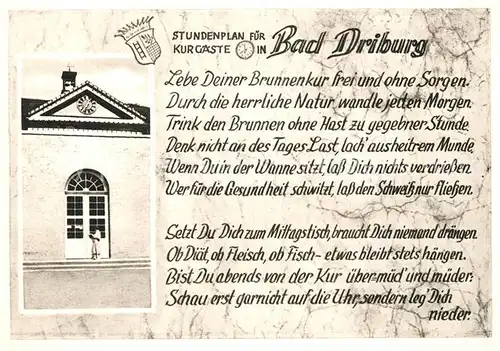 STUNDENPLAN FÜR
KURGÄSTE IN Bad Driburg
Lebe Deiner Brunnenkur frei und ohne Sorgen.
Durch die herrliche Natur wandle jeden Morgen.
Trink den Brunnen ohne Hast zu gegebner Stunde.
Denk nicht an des Tages Last, lach' aus heitrem Munde.
Wenn Du in der Wanne sitzt, laß Dich nichts verdrießen.
Wer für die Gesundheit schwitzt, laß den Schweiß nur fließen.
Setzt Du Dich zum Mittagstisch, braucht Dich niemand drängen.
Ob Diät, ob Fleisch, ob Fisch - etwas bleibt stets hängen.
Bist Du abends von der Kur über-müd' und müder:
Schau erst garnicht auf die Uhr, sondern leg' Dich
nieder.